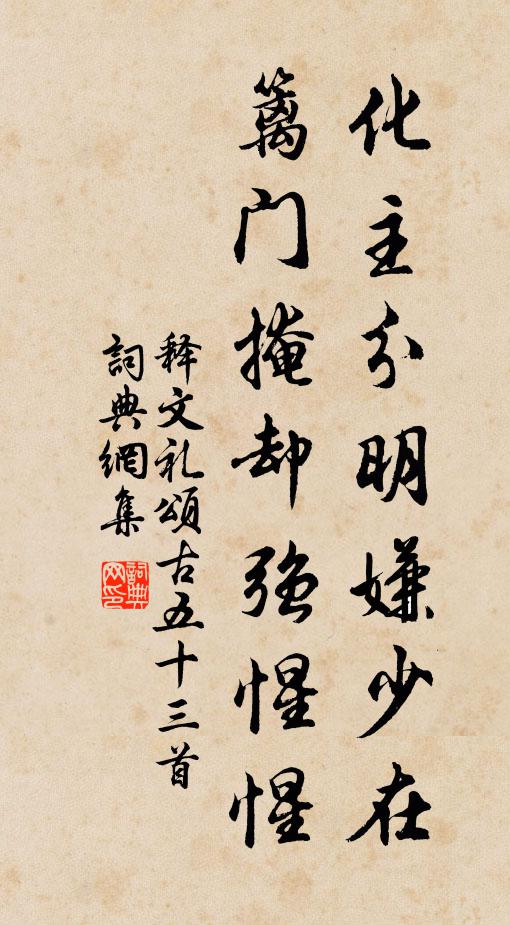 化主分明嫌少在
篱门掩却强惺惺
释文礼颂古五十三首
詞典網集
詞典網印